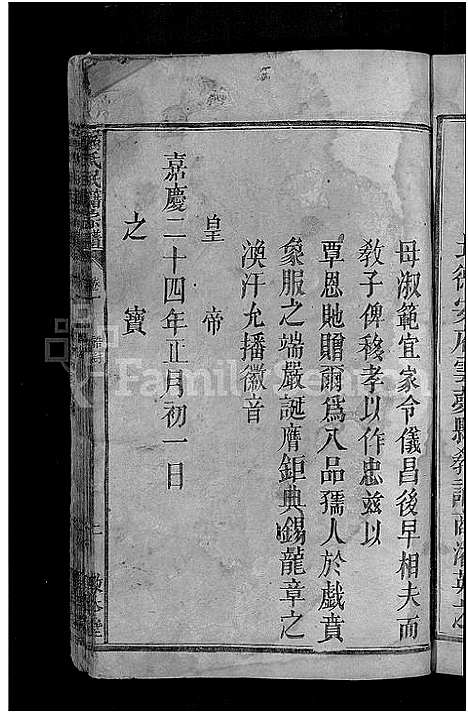 母淑範宜家令儀昌後早相夫而
教子俾移孝以作忠茲以
覃恩貤贈爾爲八品孺人於戲賁
象服之端嚴誕膺鉅典錫龍章之
渙汗允播徽音
皇帝
嘉慶二十四年正月初一日
之寶
氏譜
FamilySearch